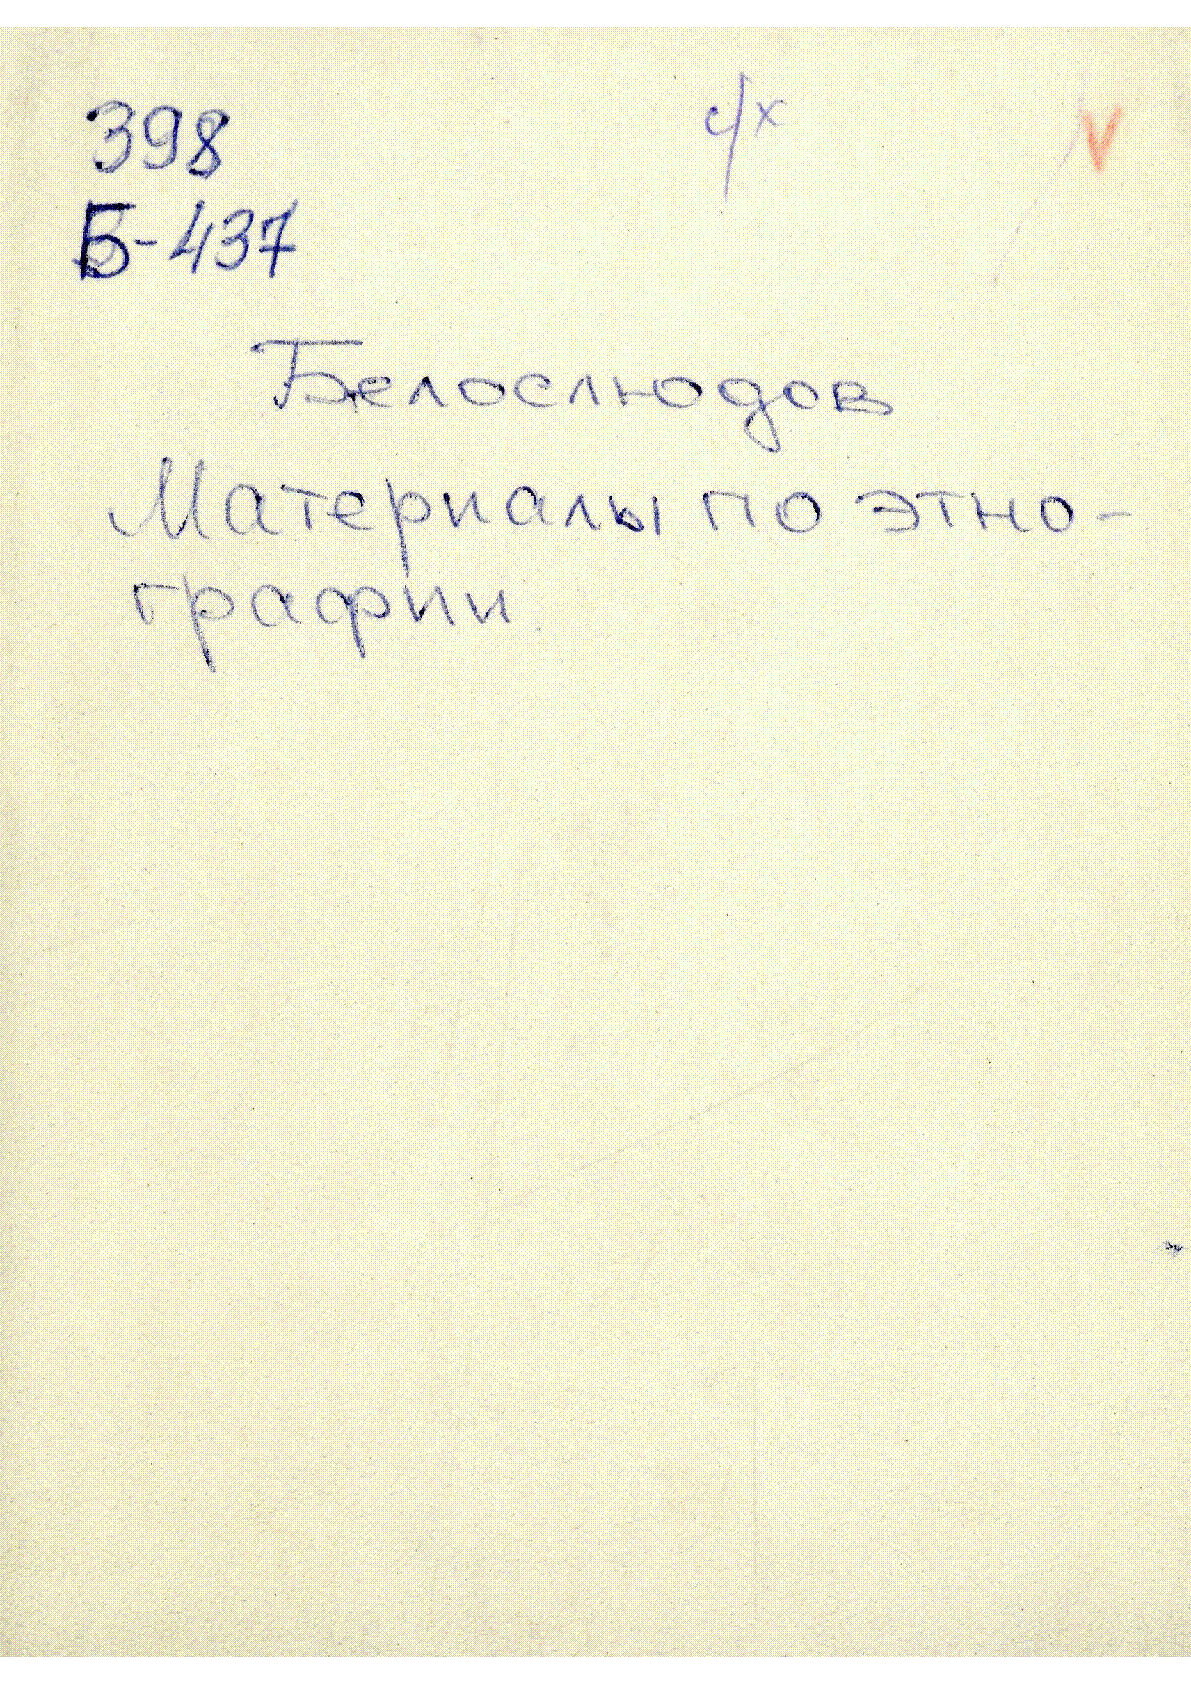 398
с/х
V
Б-437
Белослюдов
Материалы по этно-
графии